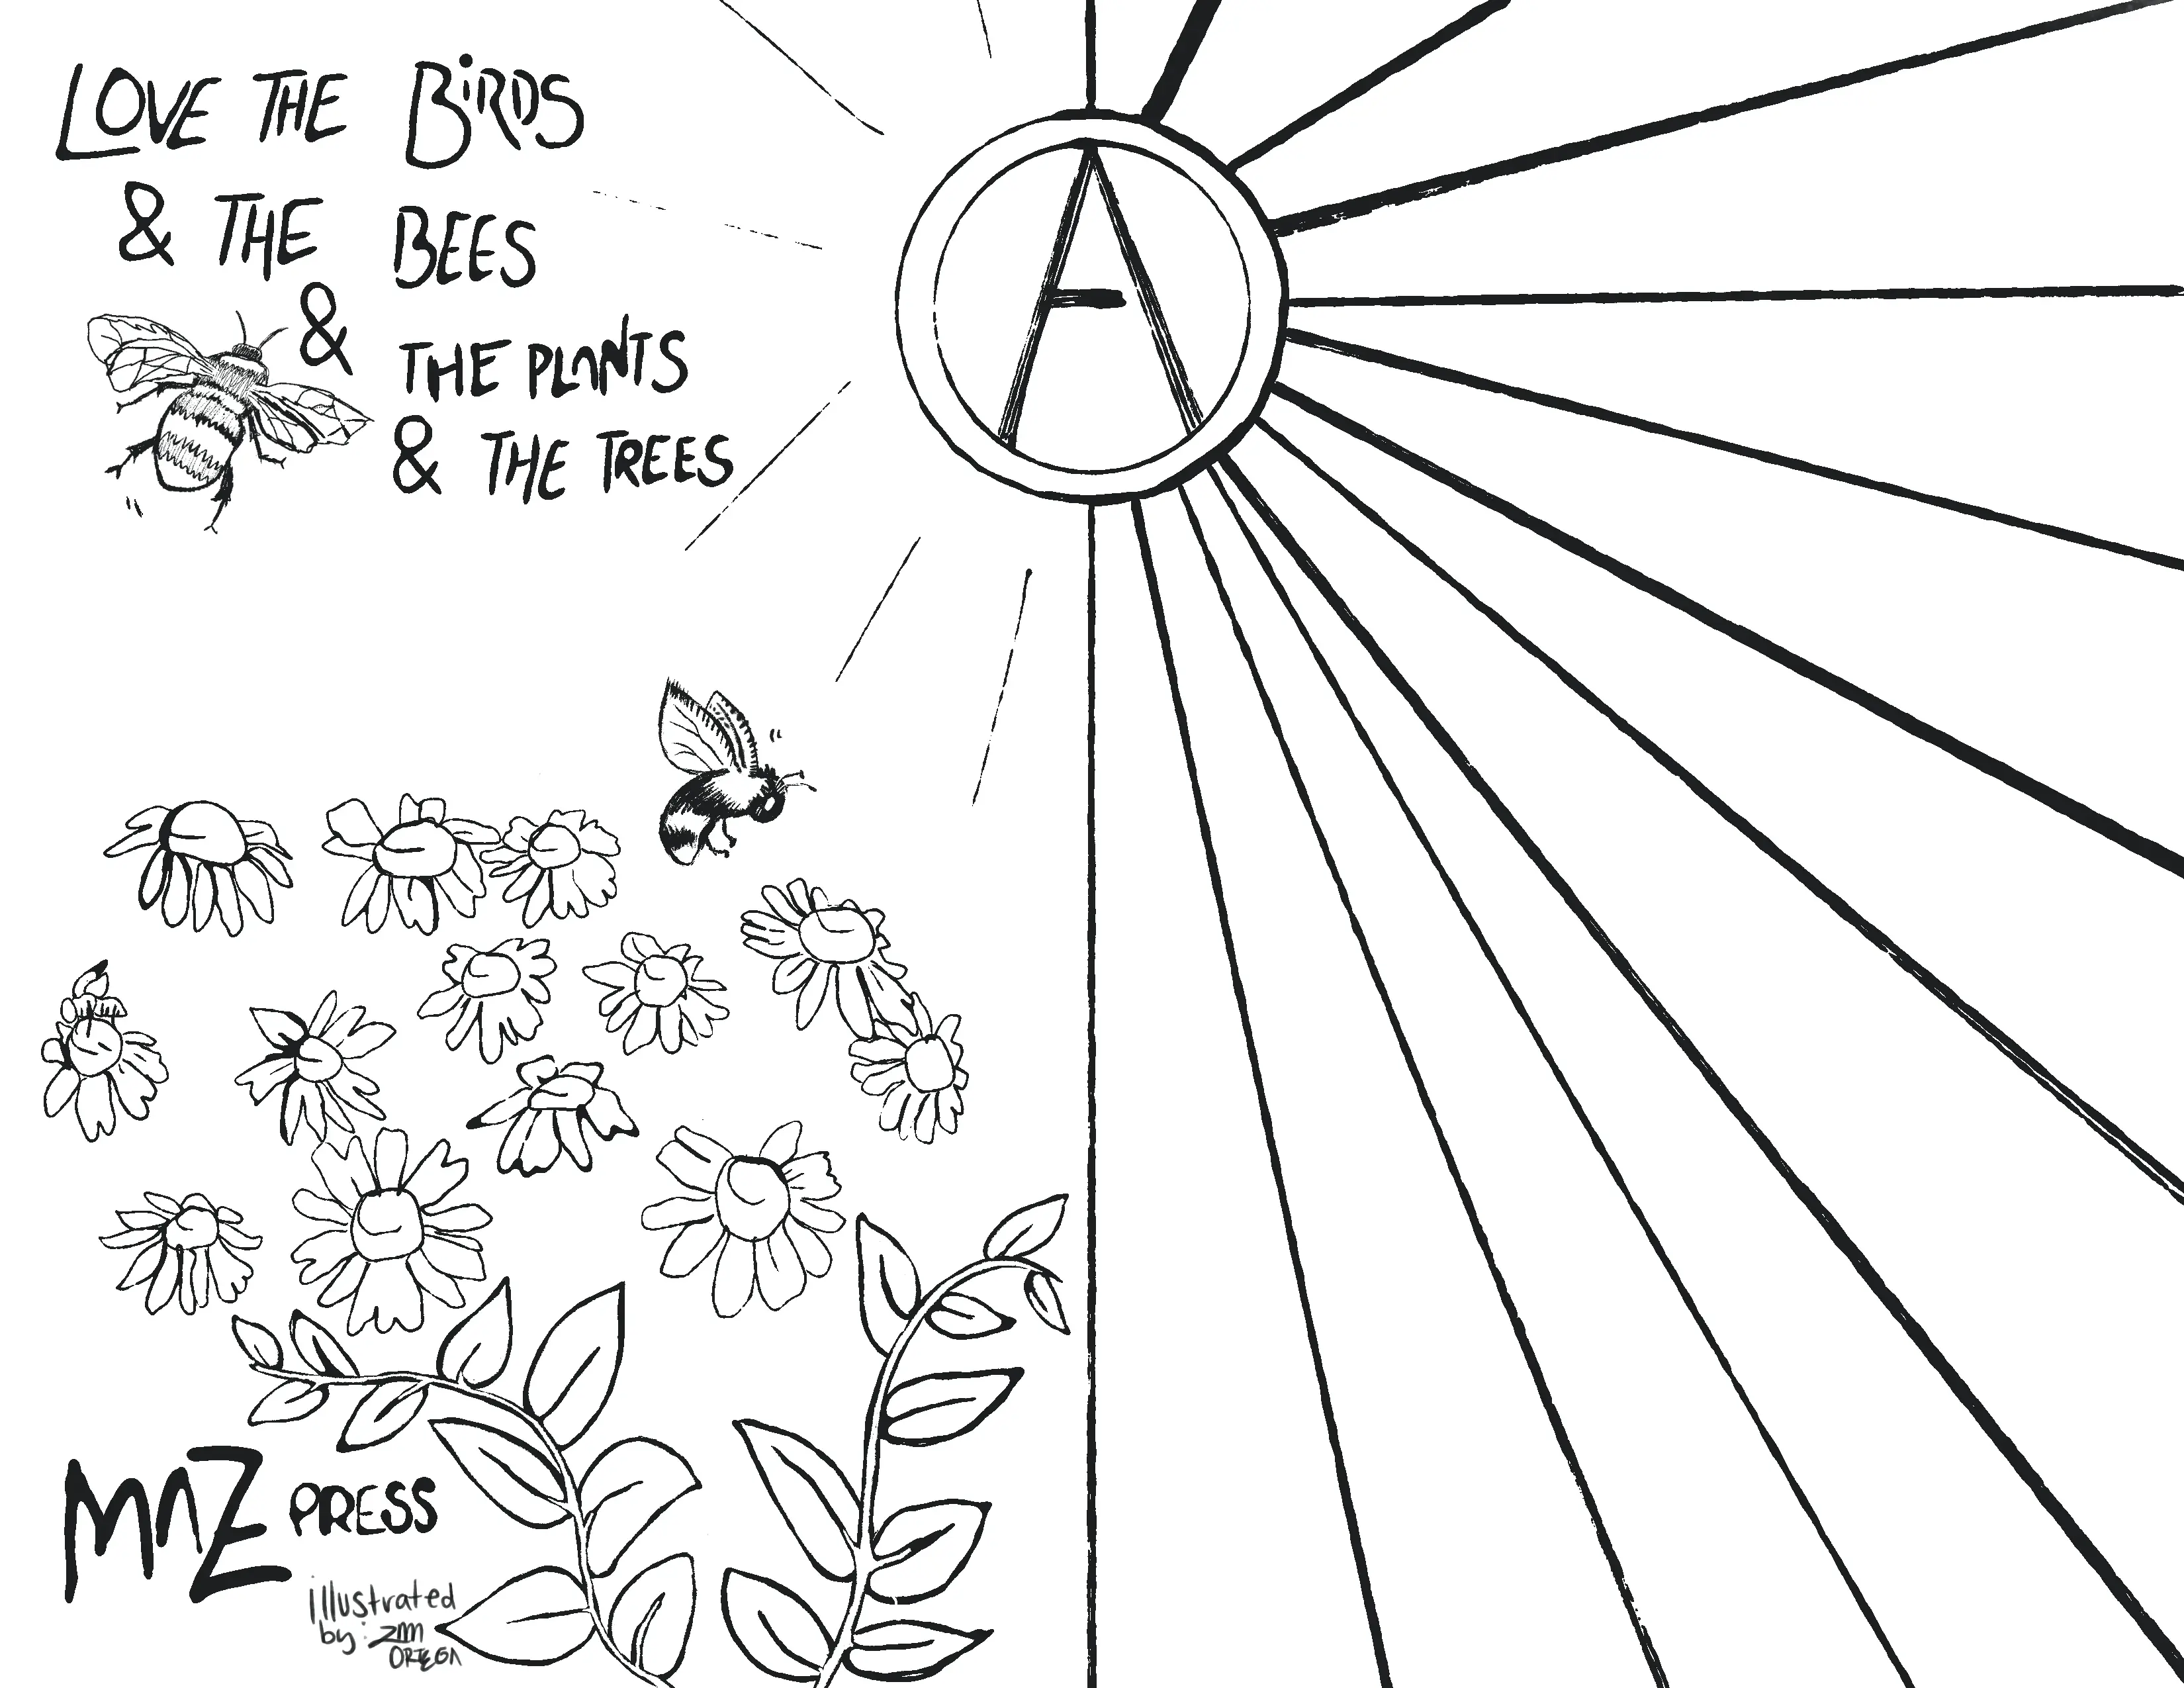 LOVE THE BIRDS
& THE BEES
&
THE PLANTS
& THE TREES
A
MNZ PRESS
illustrated
by: ZMN
ORTEGA